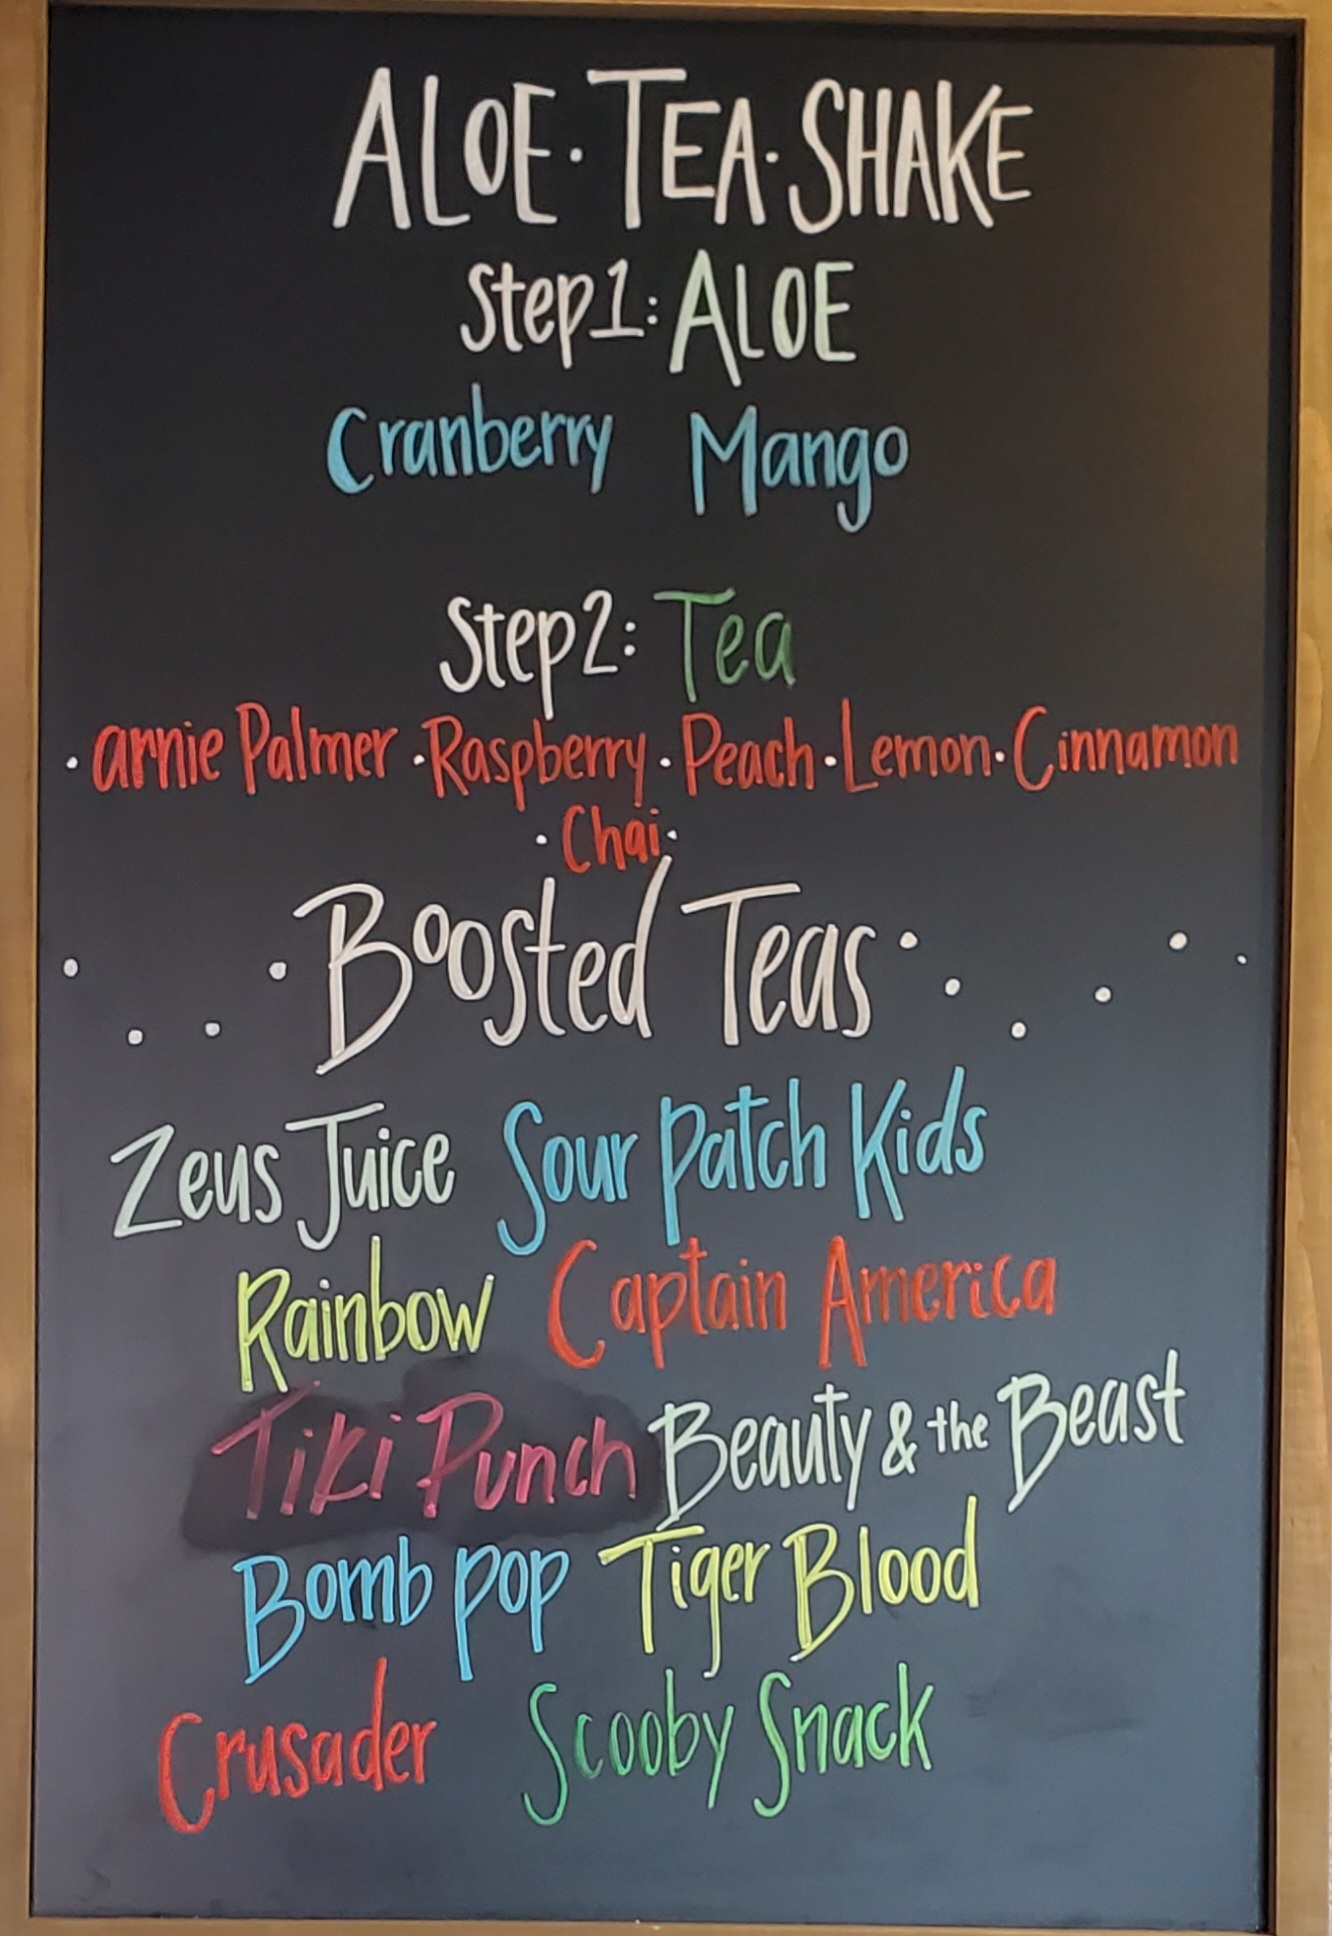 ALOE·TEA·SHAKE
Step1: ALOE
Cranberry Mango
Step2: Tea
·arnie Palmer·Raspberry·Peach·Lemon·Cinnamon
·Chai·
Boosted Teas
Zeus Juice Sour Patch Kids
Rainbow Captain America
Tiki Punch Beauty & the Beast
Bomb pop Tiger Blood
Crusader Scooby Snack